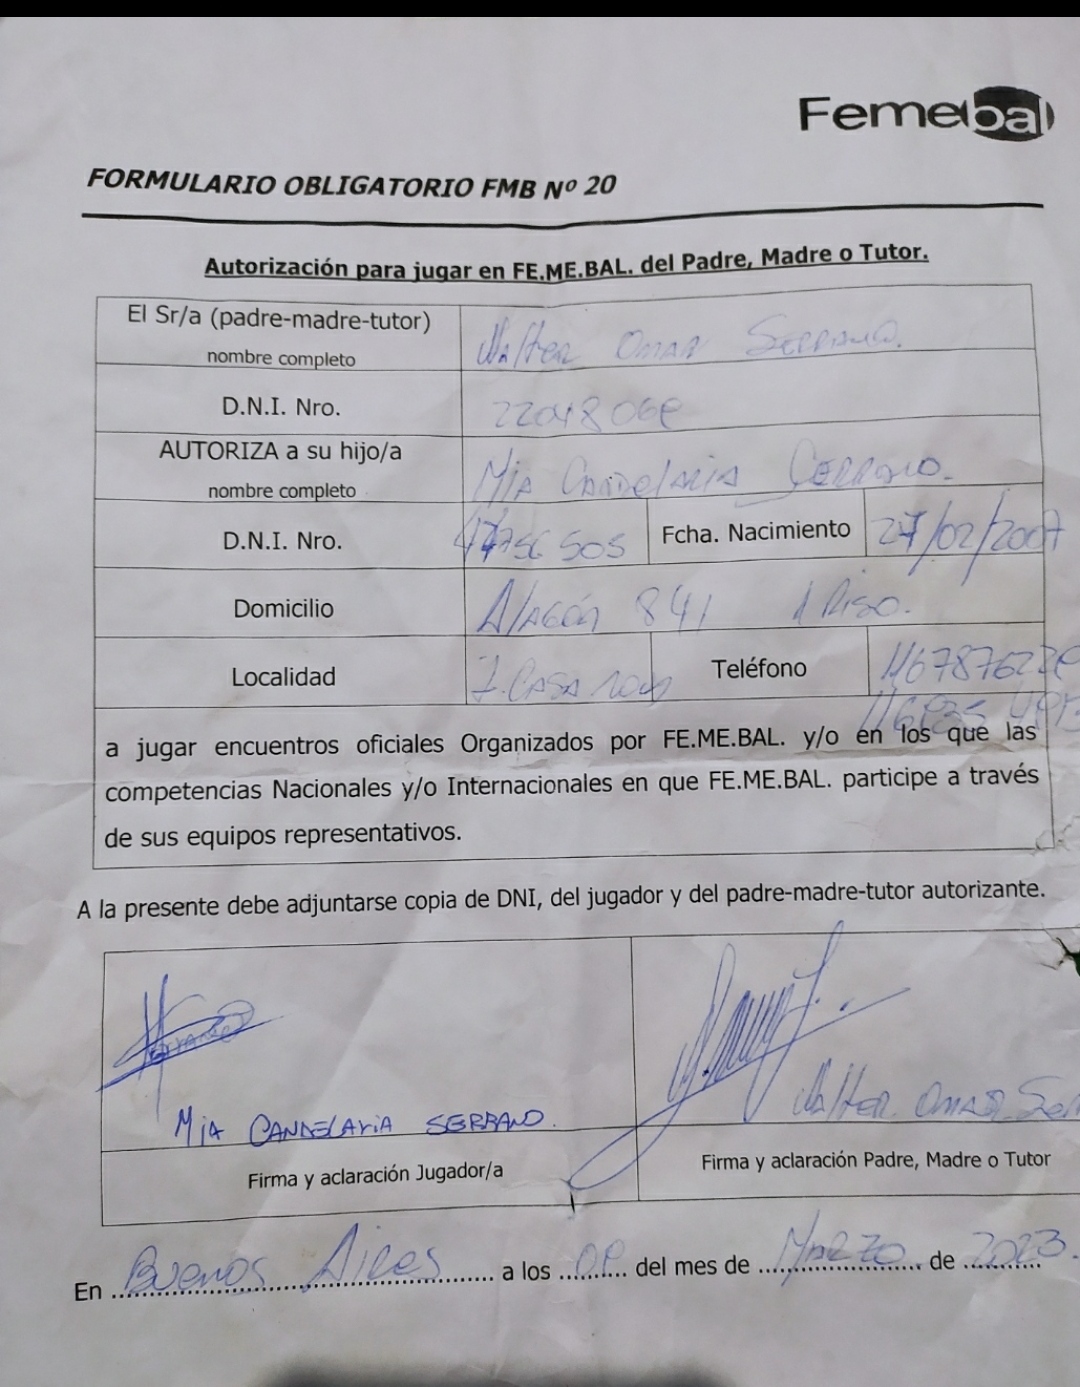 Femebal
FORMULARIO OBLIGATORIO FMB Nº 20
Autorización para jugar en FE.ME.BAL. del Padre, Madre o Tutor.
El Sr/a (padre-madre-tutor)
nombre completo
Walter Omar Serrano.
D.N.I. Nro.
AUTORIZA a su hijo/a
nombre completo
Mia Candelaria Serrano.
D.N.I. Nro.
Fcha. Nacimiento
27/02/2007
Domicilio
Alagón 841 1 Piso.
Localidad
I. Casanova
Teléfono
a jugar encuentros oficiales Organizados por FE.ME.BAL. y/o en los que las
competencias Nacionales y/o Internacionales en que FE.ME.BAL. participe a través
de sus equipos representativos.
A la presente debe adjuntarse copia de DNI, del jugador y del padre-madre-tutor autorizante.
Mia CANDELARIA SERRANO.
Walter Omar
Firma y aclaración Jugador/a
Firma y aclaración Padre, Madre o Tutor
En Buenos Aires a los del mes de Marzo de 2023.